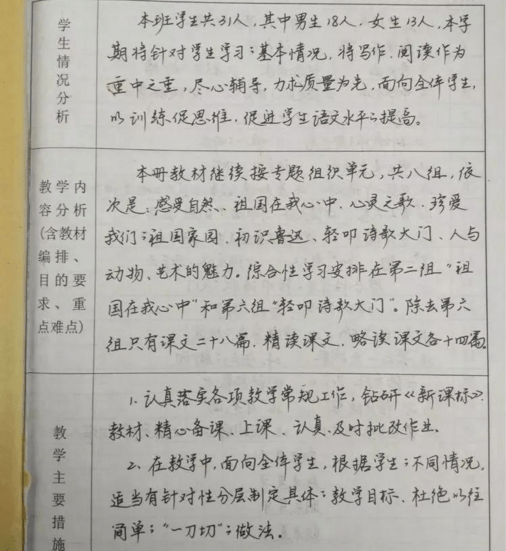 学生情况分析
本班学生共31人,其中男生18人,女生13人,本学
期将针对学生学习的基本情况,将写作、阅读作为
重中之重,尽心辅导,力求质量为先,面向全体学生,
以训练促思维,促进学生语文水平的提高。
教学内
容分析
(含教材
编排、
目的要
求、重
点难点)
本册教材继续按专题组织单元,共八组,依
次是:感受自然、祖国在我心中、心灵之歌、珍爱
我们的祖国家园、初识鲁迅、轻叩诗歌大门、人与
动物、艺术的魅力。综合性学习安排在第二组“祖
国在我心中”和第六组“轻叩诗歌大门”。除去第六
组只有课文二十八篇,精读课文、略读课文各十四篇
教学主要措施
1.认真落实各项教学常规工作,钻研《新课标》、
教材、精心备课、上课、认真、及时批改作业。
2.在教学中,面向全体学生,根据学生的不同情况,
适当有针对性分层制定具体的教学目标、杜绝以往
简单的“一刀切”的做法。